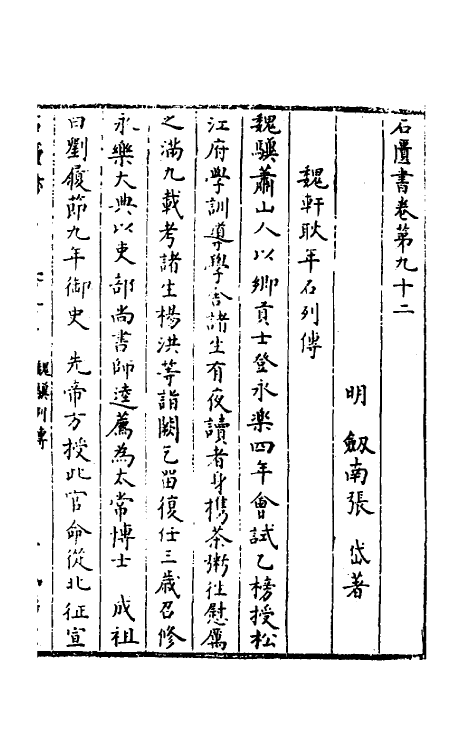 石匱書卷第九十二
明 劔南張 岱著
魏軒耿年石列傳
魏驥蕭山人以鄉貢士登永樂四年會試乙榜授松
江府學訓導學舍諸生有夜讀者身携茶粥徃慰厲
之滿九載考諸生楊洪䓁詣闕乞畱復任三歲召修
永樂大典以吏部尚書師逵薦為太常博士 成祖
曰劉履節九年御史 先帝方授此官命從北征宣
魏驥列傳